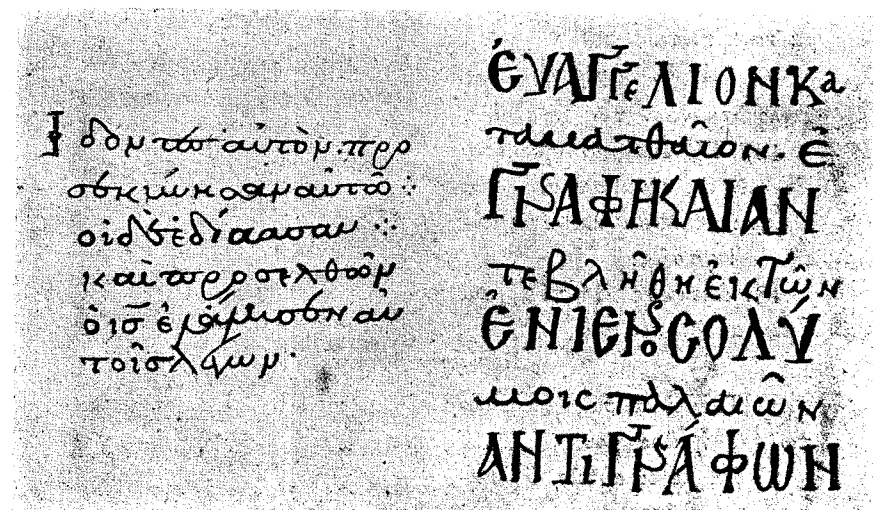 Ἰδόντες αὐτὸν·προ
σεκύνησαν αὐτῶ ⁘
οἱ δὲ ἐδίστασαν ⁘
καὶ προσελθὼν
ὁ ις̅ ἐλάλησεν αὐ
τοῖς λέγων·
ἘΥΑΓΓΕΛΙΟΝ ΚΑ
ΤΑ ΜΑΤΘΑῖΟΝ· Ἐ
ΓΡΑΦΗ ΚΑΙ ΑΝ
ΤΕΒΛῆΘΗ ἐΚ ΤῶΝ
ἘΝ ΙΕΡΟϹΟΛΎ
ΜΟΙϹ ΠΑΛΑΙῶΝ
ΑΝΤΙΓΡΆΦΩΝ